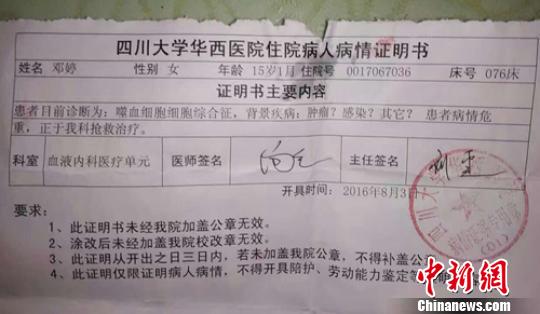 四川大学华西医院住院病人病情证明书
姓名 邓婷 性别 女 年龄 15岁1月 住院号 0017067036 床号 076床
证明书主要内容
患者目前诊断为：噬血细胞细胞综合征，背景疾病：肿瘤？感染？其它？ 患者病情危
重，正于我科抢救治疗。
科室 血液内科医疗单元 医师签名 主任签名
开具时间：2016年8月3
要求：
1、此证明书未经我院加盖公章无效。
2、涂改后未经加盖我院校改章无效。
3、此证明从开出之日三日内，若未加盖我院公章，不得补盖公
4、此证明仅限证明病人病情，不得开具陪护、劳动能力鉴定等
四川大学华西
(01)
中新网
Chinanews.com